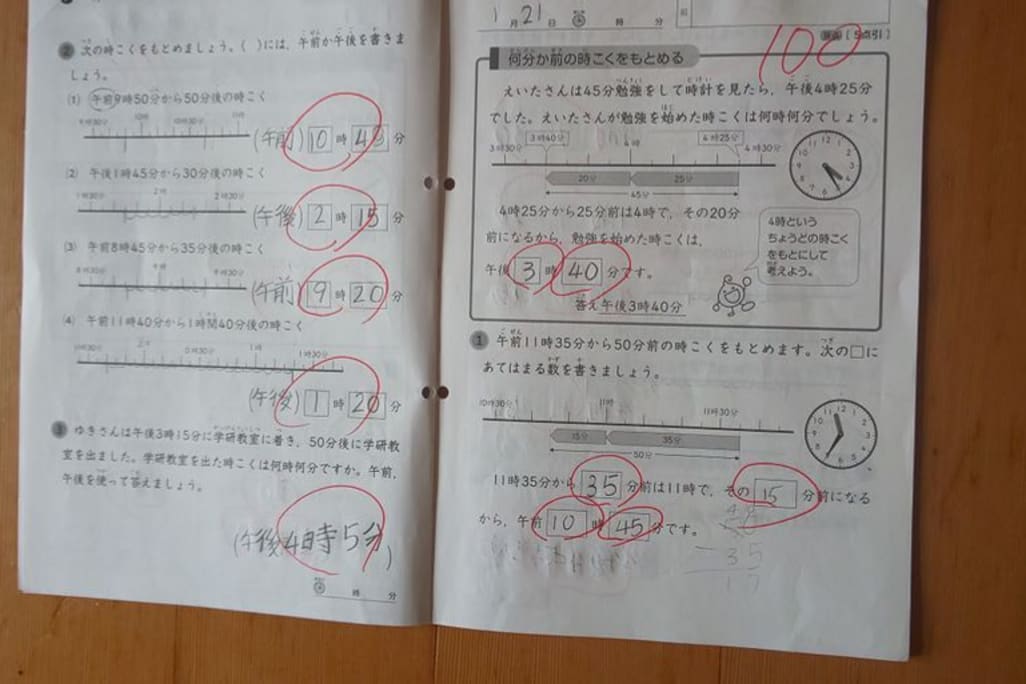 2 次の時こくをもとめましょう。( )には、午前か午後を書きま
しょう。
(1) 午前9時50分から50分後の時こく
10時 10時30分 11時
(午前) 10 時 4 分
(2) 午後1時45分から30分後の時こく
1時30分 2時 2時30分
(午後) 2 時 15 分
(3) 午前8時45分から35分後の時こく
8時30分 9時 9時30分
(午前) 9 時 20 分
(4) 午前11時40分から1時間40分後の時こく
0時30分 1時 1時30分
(午後) 1 時 20 分
3 ゆきさんは午後3時15分に学研教室に着き、50分後に学研教
室を出ました。学研教室を出た時こくは何時何分ですか。午前、
午後を使って答えましょう。
(午後4時5分)
時 分
1月21日 時 分
100
[5点引]
何分か前の時こくをもとめる
えいたさんは45分勉強をして時計を見たら、午後4時25分
でした。えいたさんが勉強を始めた時こくは何時何分でしょう。
3時40分 4時25分
3時30分 4時 4時30分
20分 25分
45分
4時25分から25分前は4時で、その20分
前になるから、勉強を始めた時こくは、
午後 3 時 40 分です。
答え 午後3時40分
4時という
ちょうどの時こく
をもとにして
考えよう。
1 午前11時35分から50分前の時こくをもとめます。次の□に
あてはまる数を書きましょう。
10時30分 11時 11時30分
15分 35分
50分
11時35分から 35 分前は11時で、その 15 分前になる
から、午前 10 時 45 分です。
-35